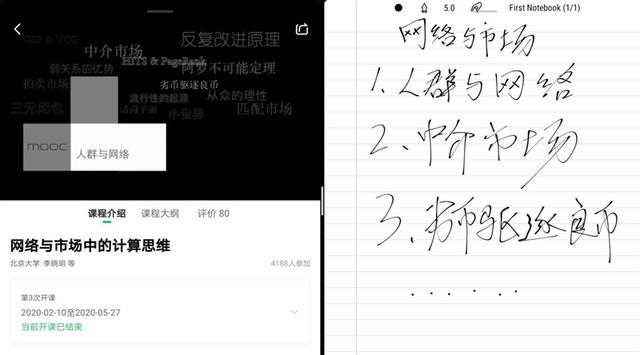 GSP & VCG
中介市场
反复改进原理
HITS & PageRank
弱关系的优势
阿罗不可能定理
拍卖市场
劣币驱逐良币
流行性的起源
从众的理性
三元闭包
小世界
匹配市场
MOOC
人群与网络
课程介绍
课程大纲
评价 80
网络与市场中的计算思维
北京大学 李晓明 等
4188人参加
第3次开课
2020-02-10至2020-05-27
当前开课已结束
5.0
First Notebook (1/1)
网络与市场
1、人群与网络
2、中介市场
3、劣币驱逐良币
......